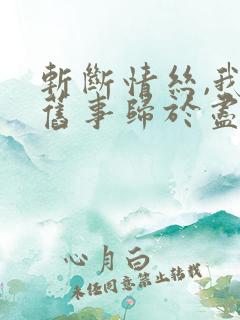 斬斷情絲,我
舊事歸於盡
心月白
未经同意禁止转载